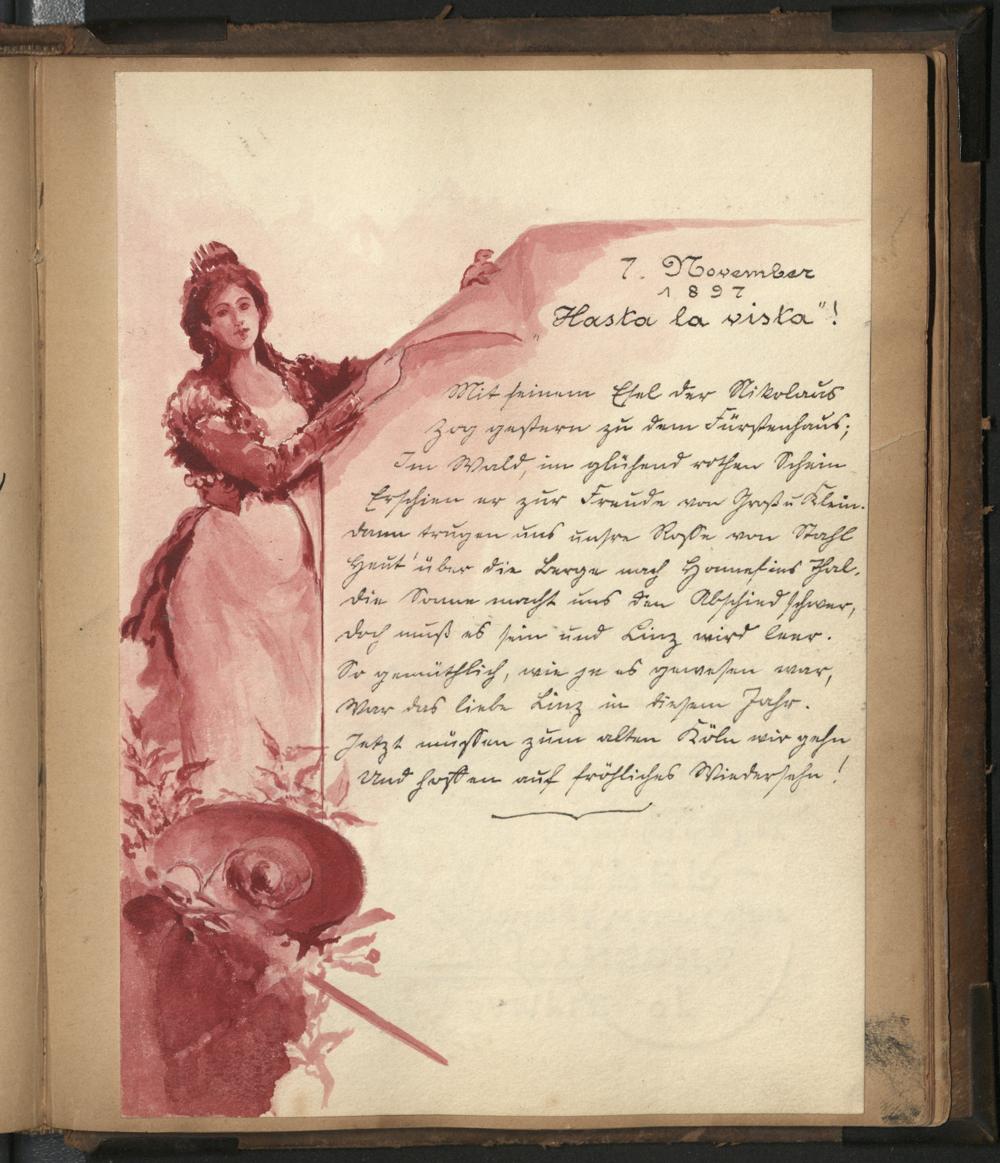 7. November
1897
„Hasta la vista"!
Mit seinem Esel der Nikolaus
Zog gestern zu dem Fürstenhaus;
Im Wald, im glühend rothen Schein
Erschien er zur Freude von Groß u Klein.
Dann trugen uns unsre Rosse von Stahl
Heut' über die Berge nach Honnef ins Thal.
Die Sonne macht uns den Abschied schwer,
Doch muß es sein und Linz wird leer.
So gemüthlich, wie je es gewesen war,
War das liebe Linz in diesem Jahr.
Jetzt müssen zum alten Köln wir gehn
Und hoffen auf fröhliches Wiedersehn!